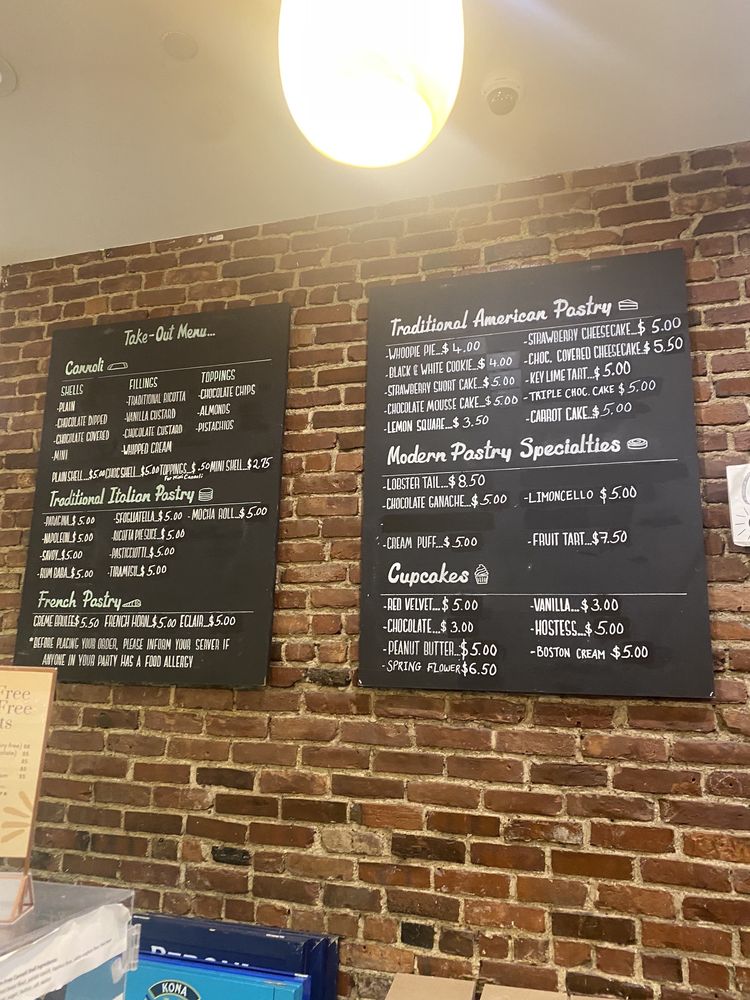 Take-Out Menu...
Cannoli
SHELLS
-PLAIN
-CHOCOLATE DIPPED
-CHOCOLATE COVERED
-MINI
FILLINGS
-TRADITIONAL RICOTTA
-VANILLA CUSTARD
-CHOCOLATE CUSTARD
-WHIPPED CREAM
TOPPINGS
-CHOCOLATE CHIPS
-ALMONDS
-PISTACHIOS
PLAIN SHELL...$5.00 CHOC SHELL...$5.00 TOPPINGS..$.50 MINI SHELL...$2.75
For Mini Cannoli
Traditional Italian Pastry
-NAPOLEON..$5.00
-SAVOY...$5.00
-RUM BABA..$5.00
-SFOGLIATELLA..$5.00
-PASTICCIOTTI..$5.00
-TIRAMISU..$5.00
-MOCHA ROLL...$5.00
French Pastry
CREME BRULEE$5.50 FRENCH HORN..$5.00 ECLAIR...$5.00
*BEFORE PLACING YOUR ORDER, PLEASE INFORM YOUR SERVER IF
ANYONE IN YOUR PARTY HAS A FOOD ALLERGY
Traditional American Pastry
-WHOOPIE PIE...$4.00
-BLACK & WHITE COOKIE..$4.00
-STRAWBERRY SHORT CAKE..$5.00
-CHOCOLATE MOUSSE CAKE..$5.00
-LEMON SQUARE...$3.50
-STRAWBERRY CHEESECAKE...$5.00
-CHOC. COVERED CHEESECAKE.$5.50
-KEY LIME TART...$5.00
-TRIPLE CHOC. CAKE $5.00
-CARROT CAKE..$5.00
Modern Pastry Specialties
-LOBSTER TAIL...$8.50
-CHOCOLATE GANACHE..$5.00
-LIMONCELLO $5.00
-CREAM PUFF...$5.00
-FRUIT TART...$7.50
Cupcakes
-RED VELVET...$5.00
-CHOCOLATE...$3.00
-PEANUT BUTTER..$5.00
-SPRING FLOWER$6.50
-VANILLA...$3.00
-HOSTESS...$5.00
-BOSTON CREAM $5.00
Free
Free
KONA